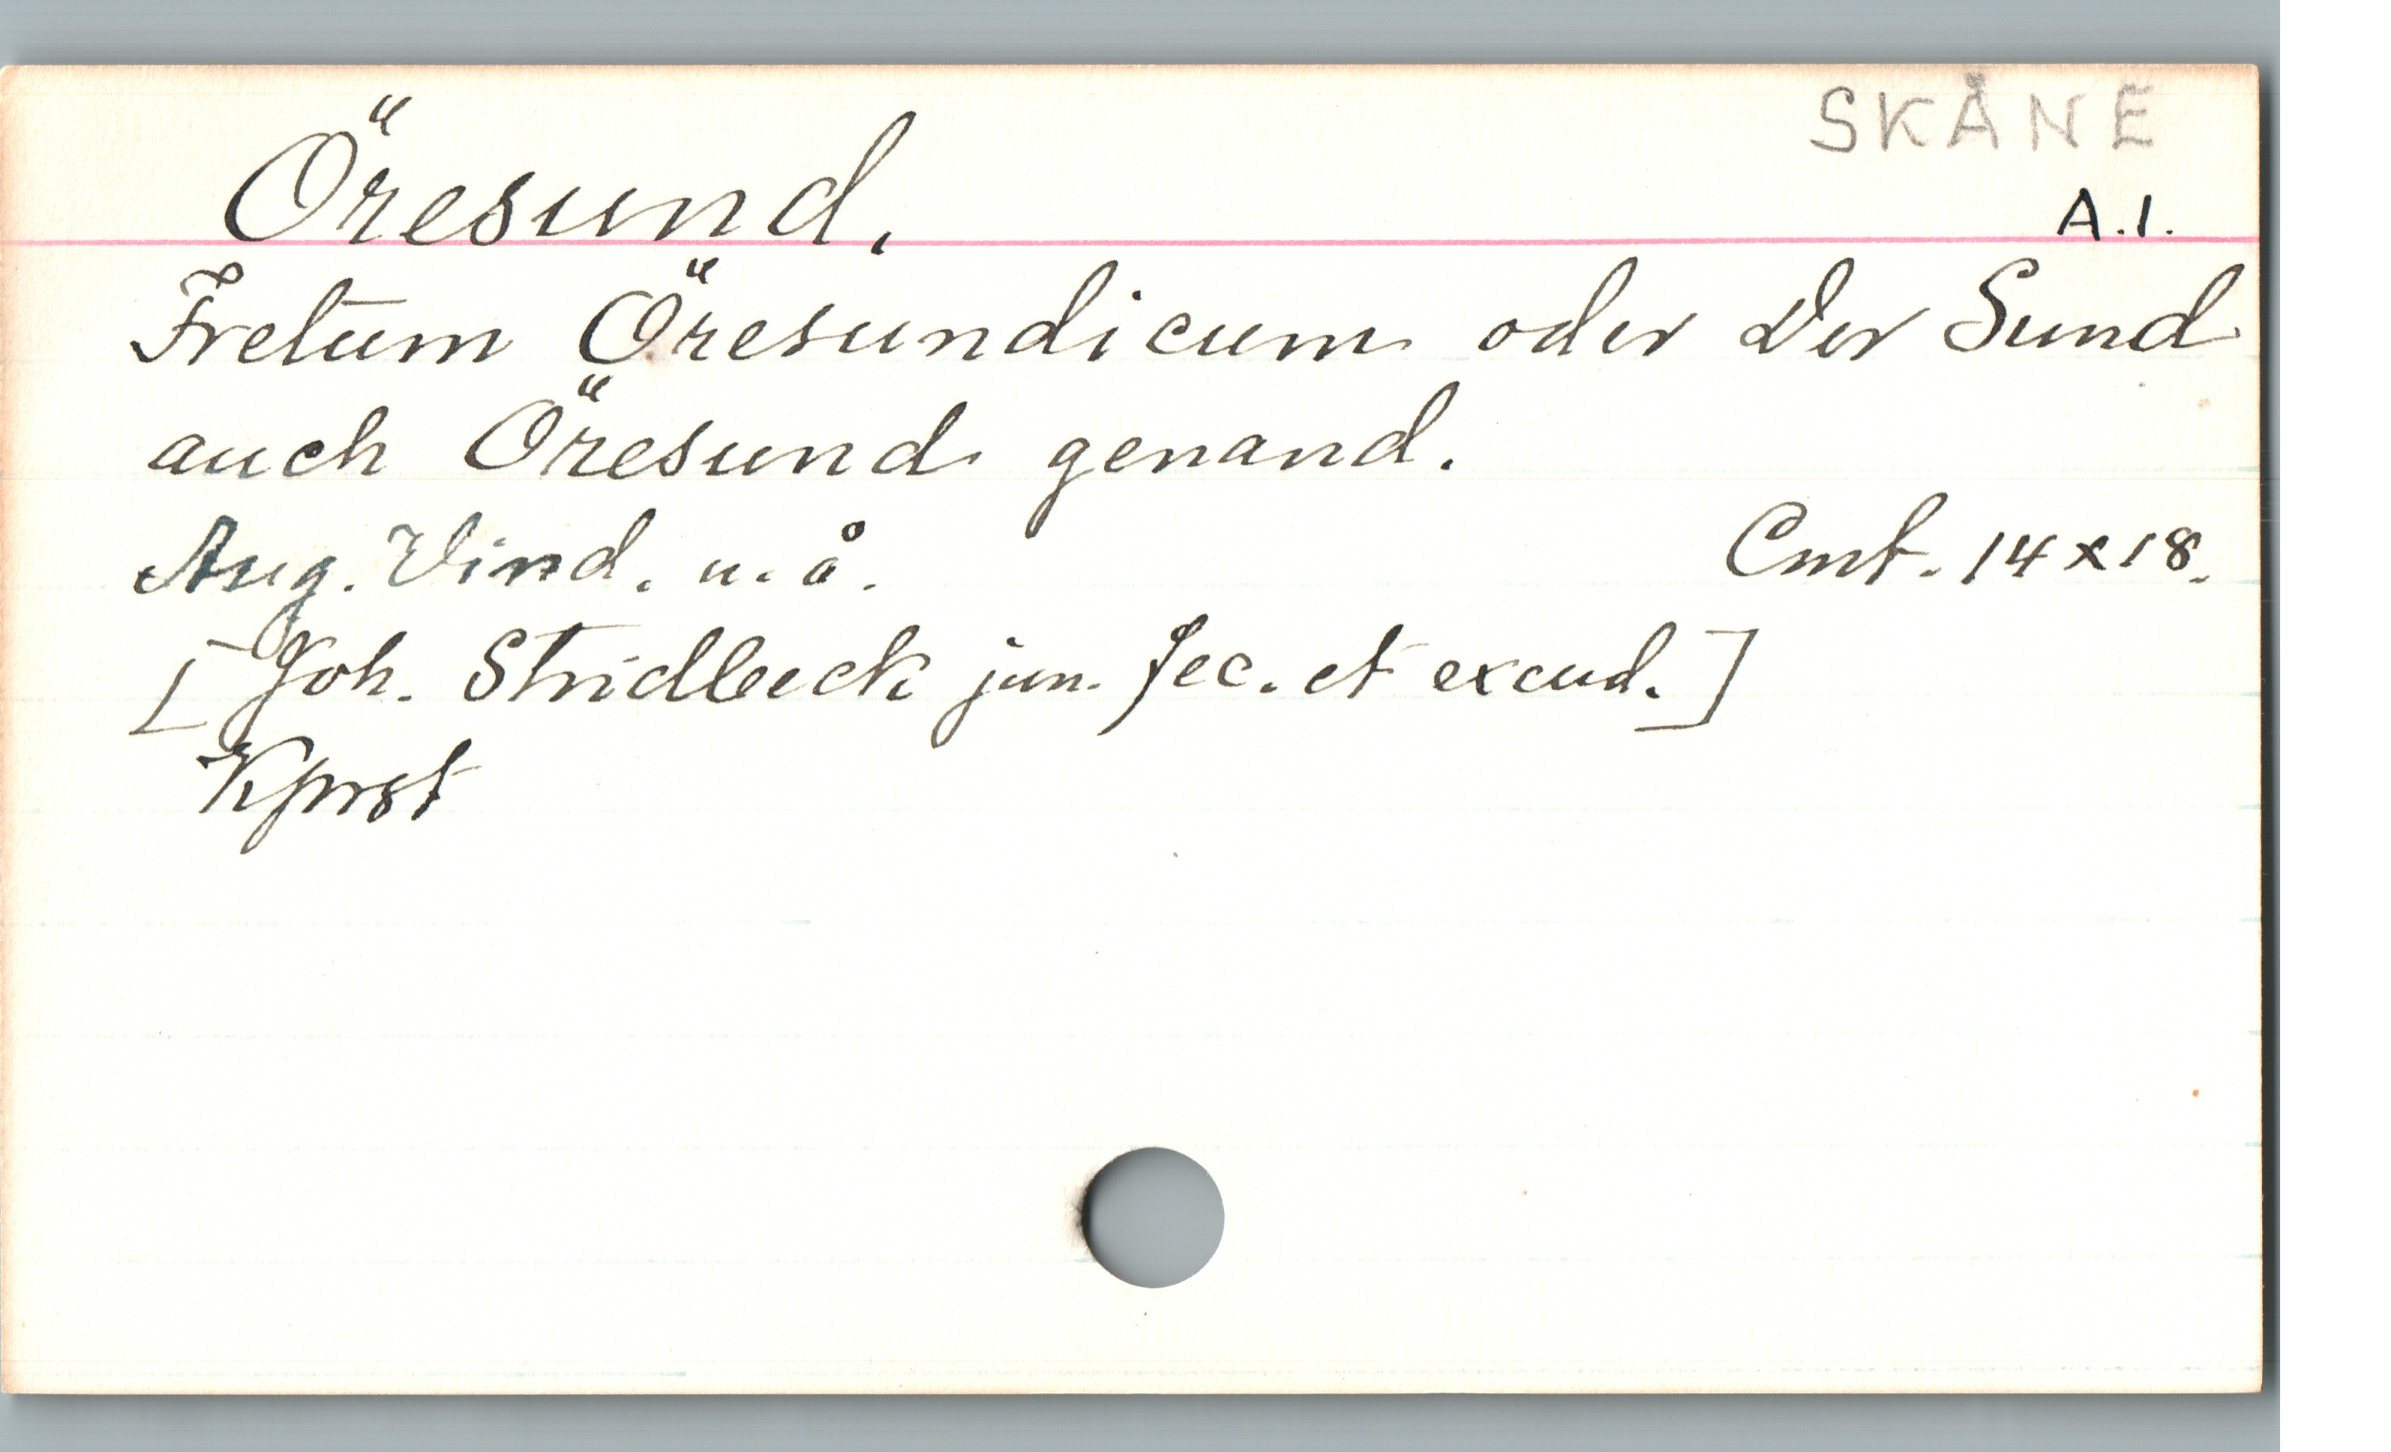 SKÅNE
Öresund.
A.1.
Fretum Öresundicum oder Der Sund
auch Öresund genand.
Aug. Vind. u. å. Cmt. 14 x 18.
[Joh. Stridbeck jun. fec. et excud.]
Kprst